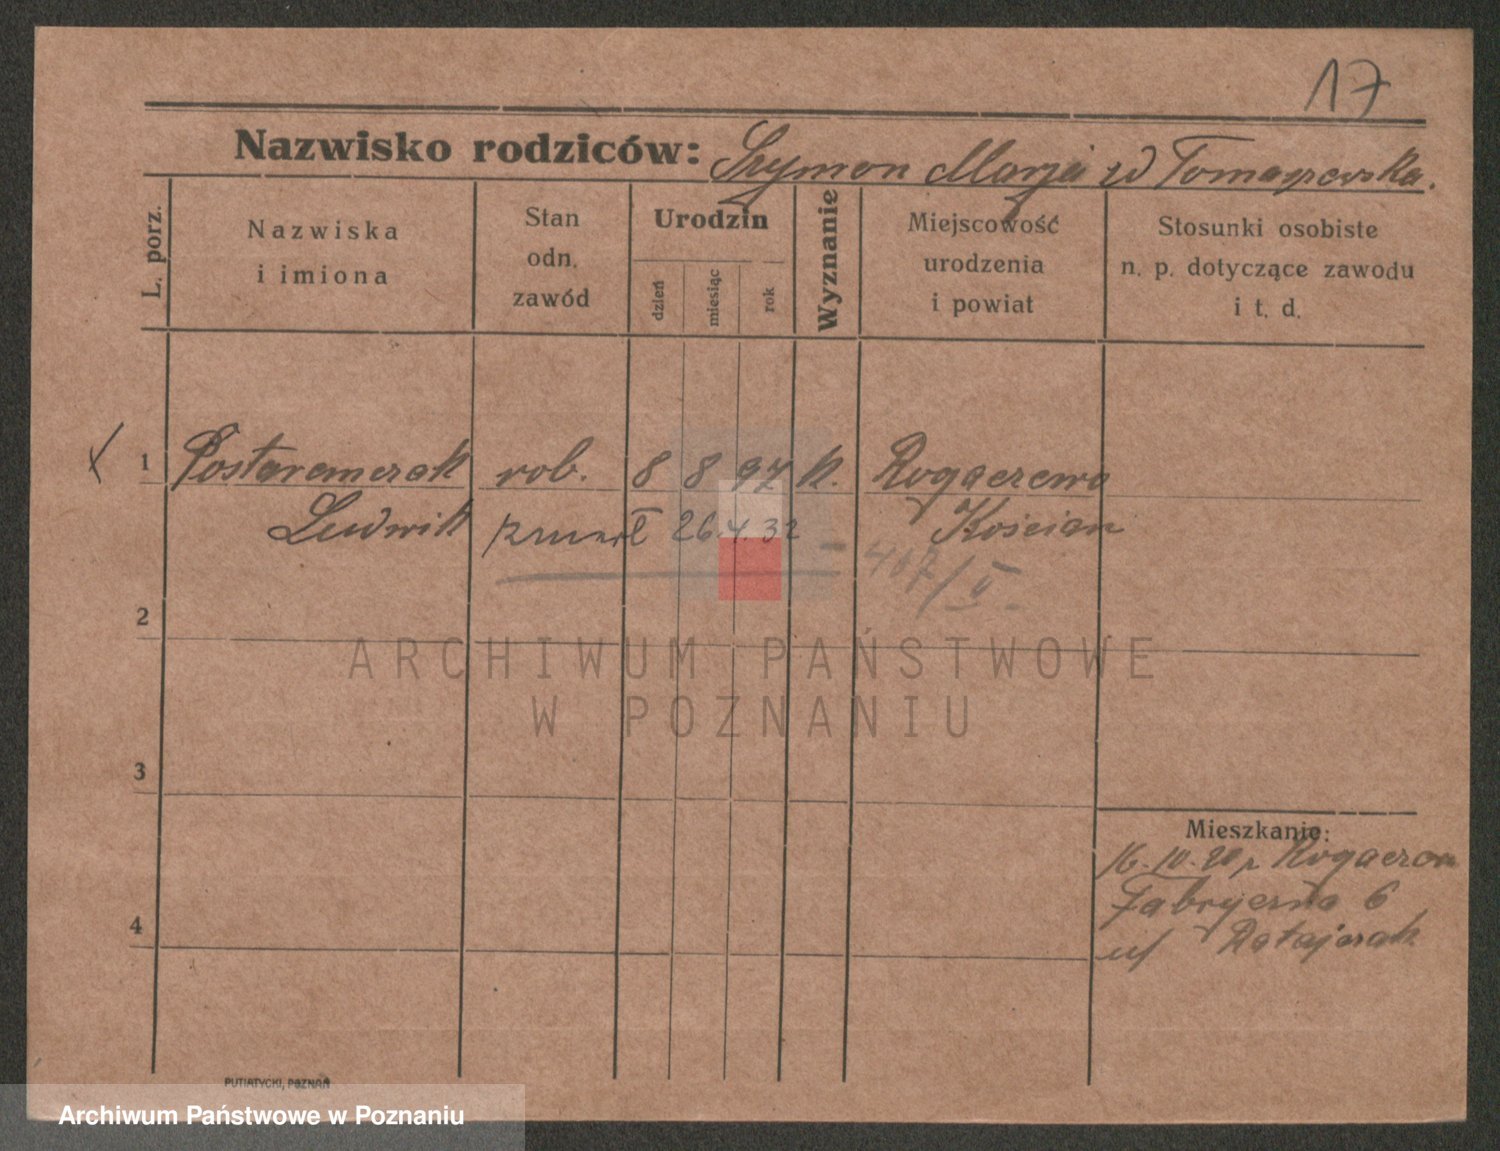 17
Nazwisko rodziców: Szymon Marja z d Tomaszewska.
L. porz.
Nazwiska
i imiona
Stan
odn.
zawód
Urodzin
dzień
miesiąc
rok
Wyznanie
Miejscowość
urodzenia
i powiat
Stosunki osobiste
n. p. dotyczące zawodu
i t. d.
1 rob. 8 8 97 k. Rogaczewo
Ludwik zmarł 26.4.32 Kościan
467/II
2
ARCHIWUM PAŃSTWOWE
W POZNANIU
3
Mieszkanie:
16.10.20 z
Fabryczna 6
4
u/ Ratajczak
PUTIATYCKI, POZNAŃ
Archiwum Państwowe w Poznaniu